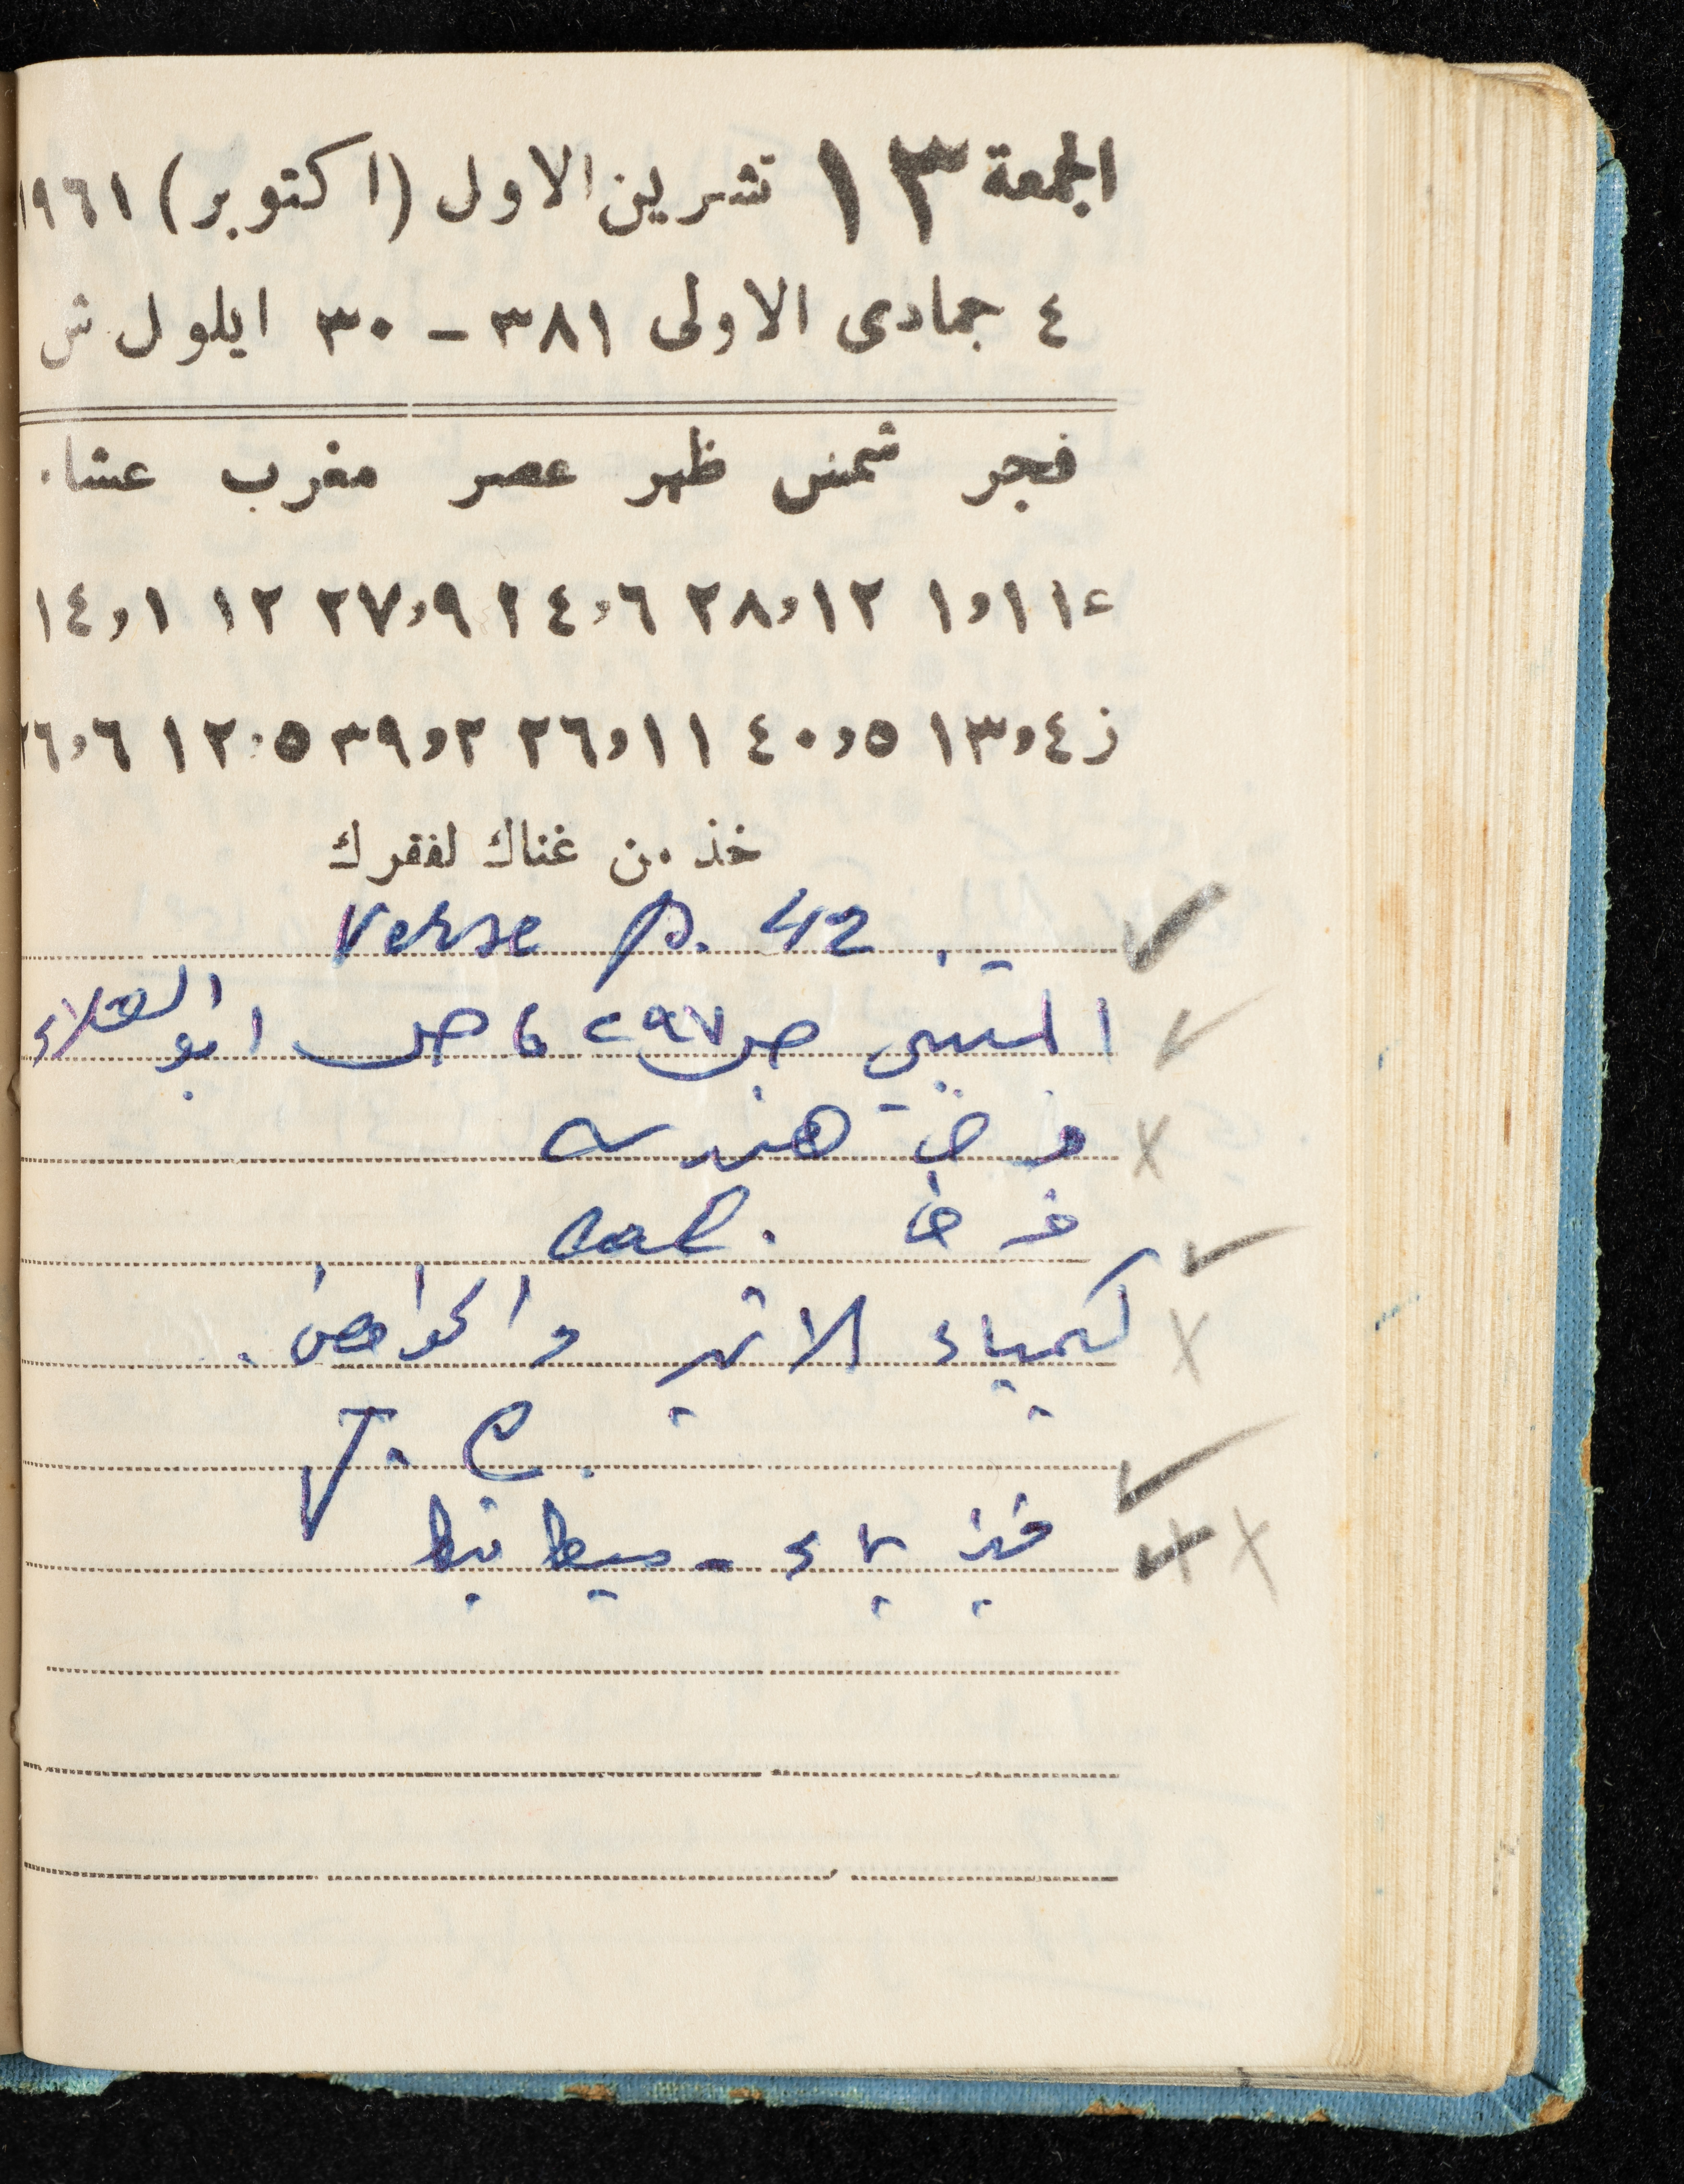 الجمعة ١٣ تشرين الاول (اكتوبر) ١٩٦١
٤ جمادى الاولى ٣٨١ - ٣٠ ايلول ش
فجر شمس ظهر عصر مغرب عشاء
ع ١١٫١ ١٢٫٢٨ ٦٫٢٤ ٩٫٢٧ ١٢ ١٫١٤
ز ٤٫١٣ ٥٫٤٠ ١١٫٢٦ ٢٫٣٩ ٥٫١٢ ٦٫٢٦
خذ من غناك لفقرك
Verse p. 42
المتنبي ص ٢٩٧ ، ص ابو العلاء
فرض هندسه
فرض cal.
كيمياء الاثير والحوامض.
J. C.
فيزياء -